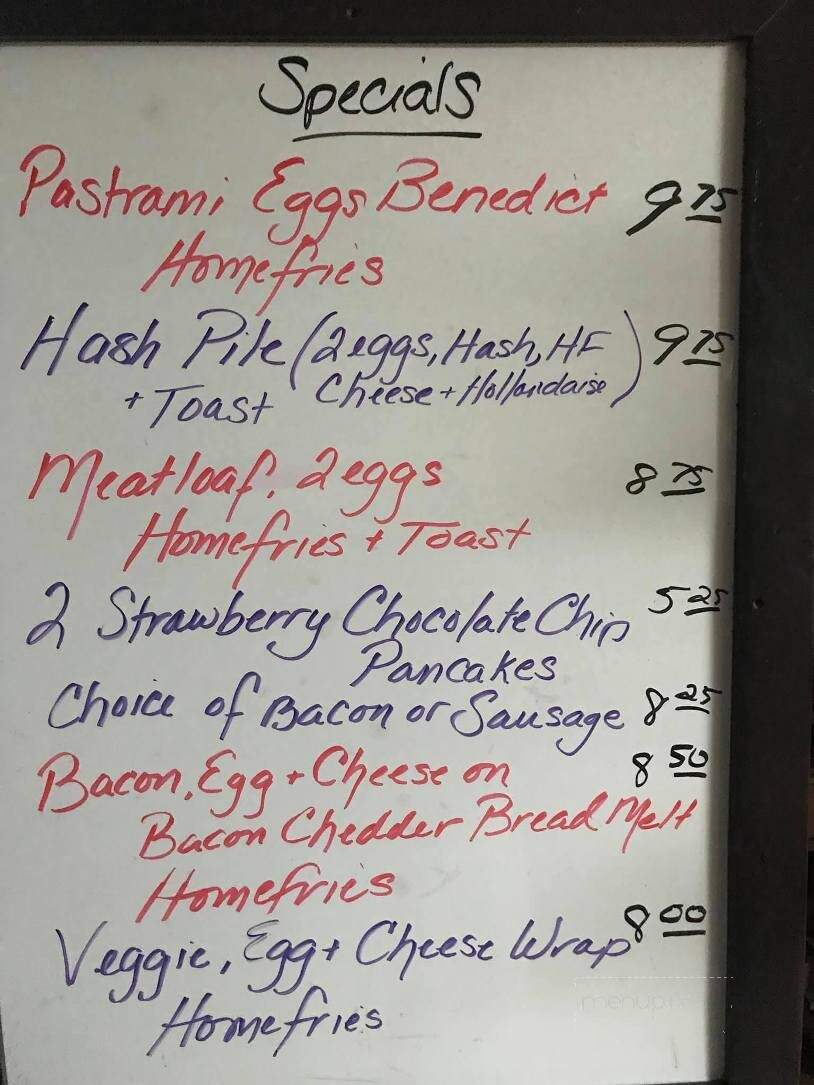 Specials
Pastrami Eggs Benedict 9 75
Homefries
Hash Pile (2 eggs, Hash, HF 9 75
+ Toast Cheese + Hollandaise)
Meatloaf, 2 eggs 8 75
Homefries + Toast
2 Strawberry Chocolate Chip 5 25
Pancakes
Choice of Bacon or Sausage 8 25
Bacon, Egg + Cheese on 8 50
Bacon Chedder Bread Melt
Homefries
Veggie, Egg + Cheese Wrap 8 00
Homefries